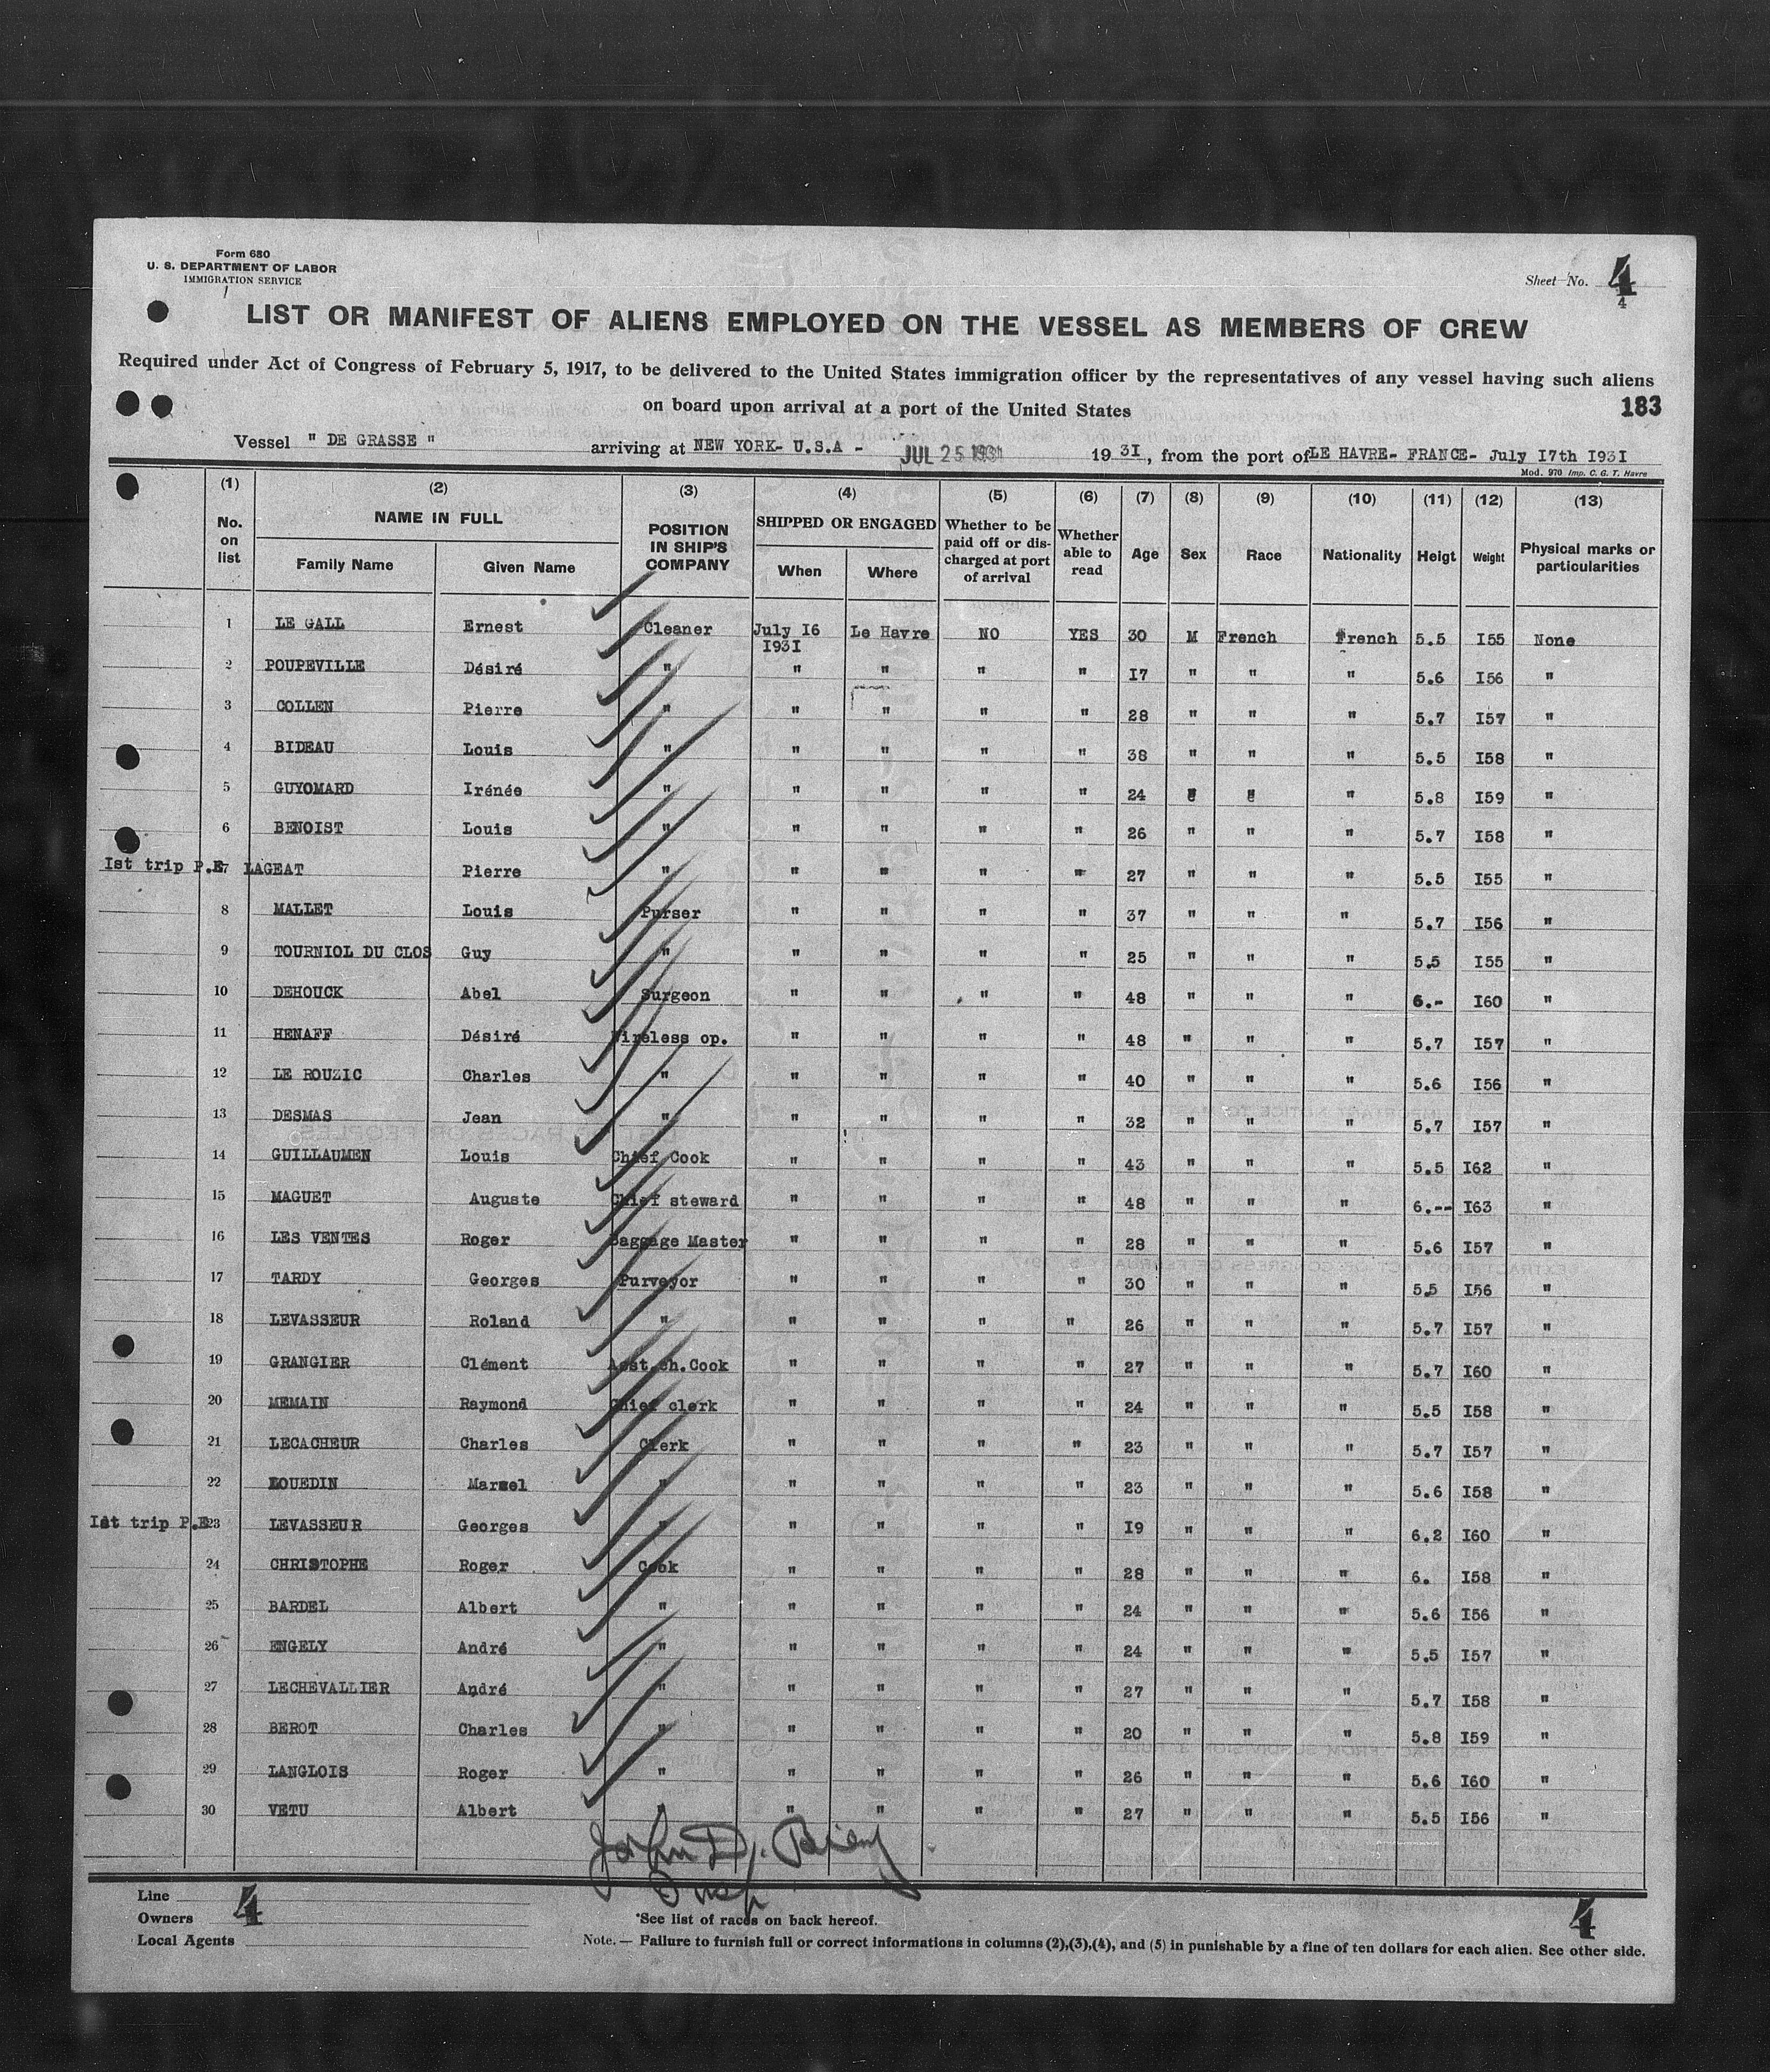 Form 680
U. S. DEPARTMENT OF LABOR
IMMIGRATION SERVICE
Sheet No. 4
4
LIST OR MANIFEST OF ALIENS EMPLOYED ON THE VESSEL AS MEMBERS OF CREW
Required under Act of Congress of February 5, 1917, to be delivered to the United States immigration officer by the representatives of any vessel having such aliens
on board upon arrival at a port of the United States
183
Vessel " DE GRASSE " arriving at NEW YORK- U.S.A - JUL 25 1931 19 3I, from the port of LE HAVRE- FRANCE- July I7th I93I
Mod. 976 Imp. C. G. T. Havre
(1) (2) (3) (4) (5) (6) (7) (8) (9) (10) (11) (12) (13)
No. on list NAME IN FULL Family Name Given Name POSITION IN SHIP'S COMPANY SHIPPED OR ENGAGED When Where Whether to be paid off or discharged at port of arrival Whether able to read Age Sex Race Nationality Heigt Weight Physical marks or particularities
1 LE GALL Ernest Cleaner July I6 I93I Le Havre NO YES 30 M French French 5.5 I55 None
2 POUPEVILLE Désiré " " " " " I7 " " " 5.6 I56 "
3 COLLEN Pierre " " " " " 28 " " " 5.7 I57 "
4 BIDEAU Louis " " " " " 38 " " " 5.5 I58 "
5 GUYOMARD Irénée " " " " " 24 " " " 5.8 I59 "
6 BENOIST Louis " " " " " 26 " " " 5.7 I58 "
Ist trip P.E 7 LAGEAT Pierre " " " " " 27 " " " 5.5 I55 "
8 MALLET Louis Purser " " " " 37 " " " 5.7 I56 "
9 TOURNIOL DU CLOS Guy " " " " " 25 " " " 5.5 I55 "
10 DEHOUCK Abel Surgeon " " " " 48 " " " 6.- I60 "
11 HENAFF Désiré Wireless op. " " " " 48 " " " 5.7 I57 "
12 LE ROUZIC Charles " " " " " 40 " " " 5.6 I56 "
13 DESMAS Jean " " " " " 32 " " " 5.7 I57 "
14 GUILLAUMEN Louis Chief Cook " " " " 43 " " " 5.5 I62 "
15 MAGUET Auguste Chief steward " " " " 48 " " " 6.-- I63 "
16 LES VENTES Roger Baggage Master " " " " 28 " " " 5.6 I57 "
17 TARDY Georges Purveyor " " " " 30 " " " 5.5 I56 "
18 LEVASSEUR Roland " " " " " 26 " " " 5.7 I57 "
19 GRANGIER Clément Asst.ch.Cook " " " " 27 " " " 5.7 I60 "
20 MEMAIN Raymond Chief clerk " " " " 24 " " " 5.5 I58 "
21 LECACHEUR Charles Clerk " " " " 23 " " " 5.7 I57 "
22 LOUEDIN Marcel " " " " " 23 " " " 5.6 I58 "
Ist trip P.E 23 LEVASSEUR Georges " " " " " I9 " " " 6.2 I60 "
24 CHRISTOPHE Roger Cook " " " " 28 " " " 6. I58 "
25 BARDEL Albert " " " " " 24 " " " 5.6 I56 "
26 ENGELY André " " " " " 24 " " " 5.5 I57 "
27 LECHEVALLIER André " " " " " 27 " " " 5.7 I58 "
28 BEROT Charles " " " " " 20 " " " 5.8 I59 "
29 LANGLOIS Roger " " " " " 26 " " " 5.6 I60 "
30 VETU Albert " " " " " 27 " " " 5.5 I56 "
John D. 
Insp
Line
Owners 4
Local Agents
*See list of races on back hereof.
4
Note.— Failure to furnish full or correct informations in columns (2),(3),(4), and (5) in punishable by a fine of ten dollars for each alien. See other side.